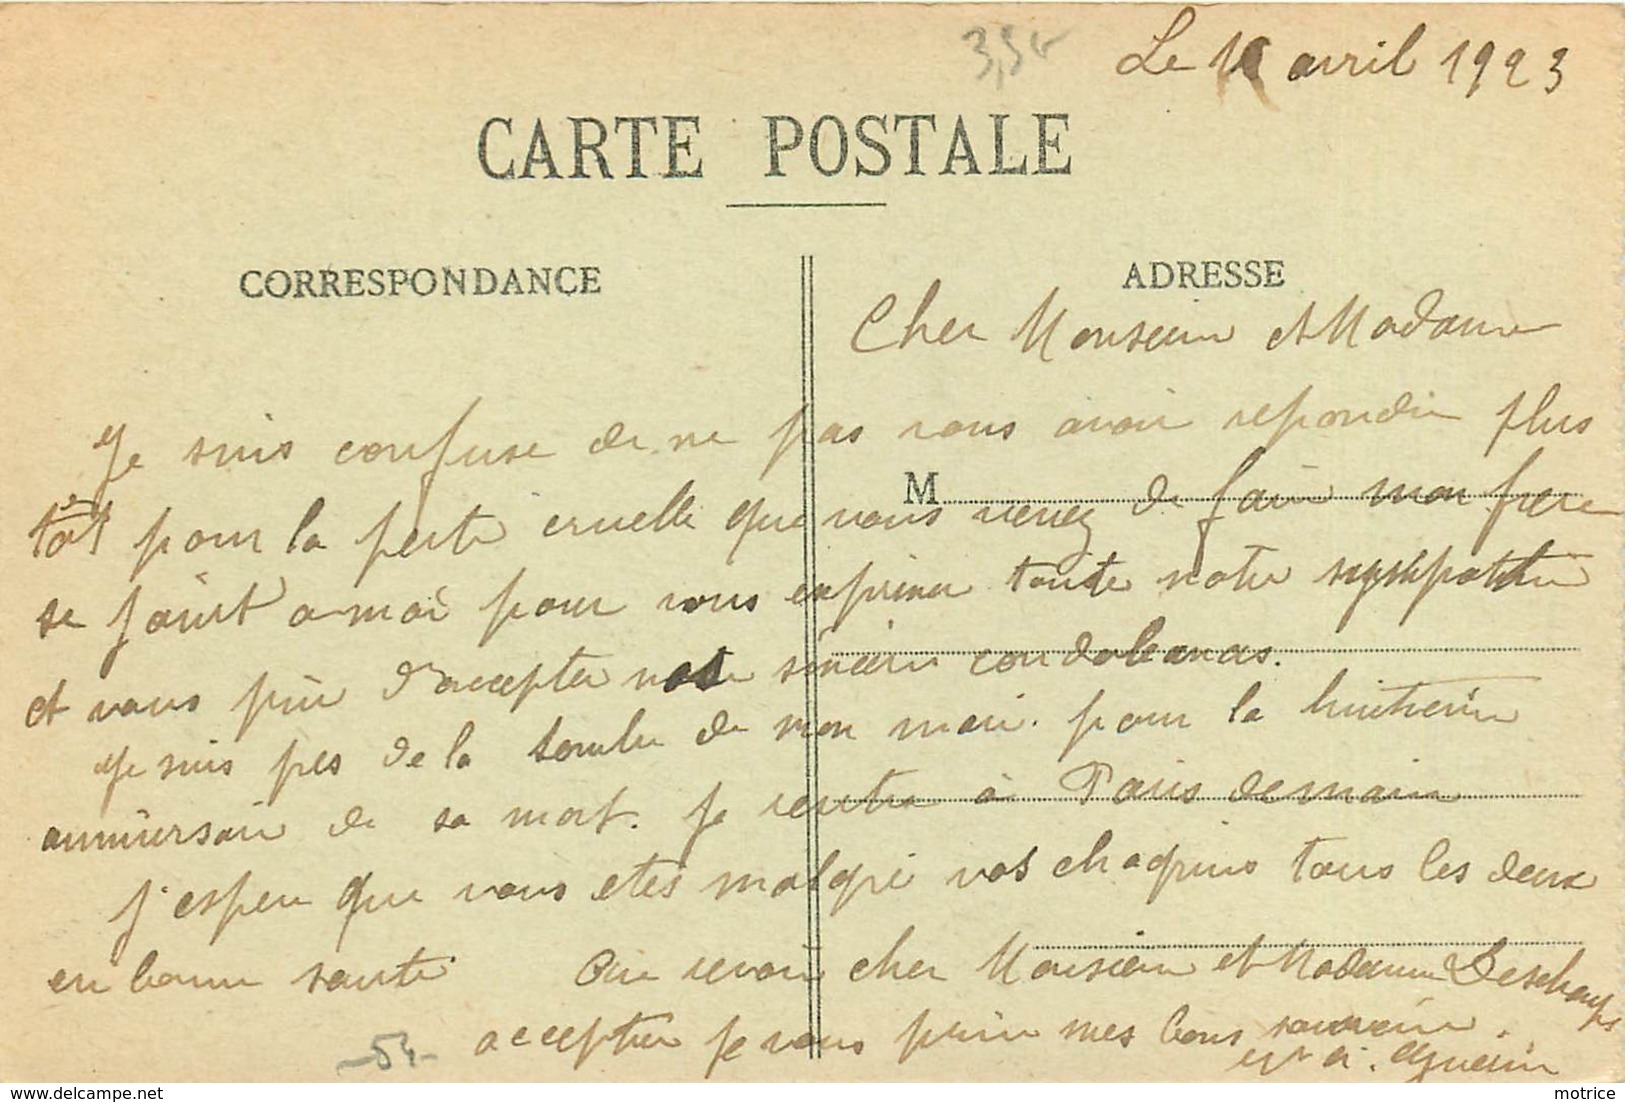 3,50
Le avril 1923
CARTE POSTALE
CORRESPONDANCE
ADRESSE
Cher Monsieur et Madame
Je suis confuse de ne pas vous avoir repondu plus
M
tôt pour la perte cruelle que vous venez de faire mon frere
se joint a moi pour vous exprimer toute notre sympathie
et vous prie d'accepter nos sincere condoleances.
Je suis pres de la tombe de mon mari. pour la huitieme
anniversaire de sa mort. je rentre à Paris demain
j'espere que vous etes malgré vos chagrins tous les deux
en bonne santé Au revoir cher Monsieur et Madame Deschamps
accepter je vous prie mes bons souvenir.
Guerin
motrice